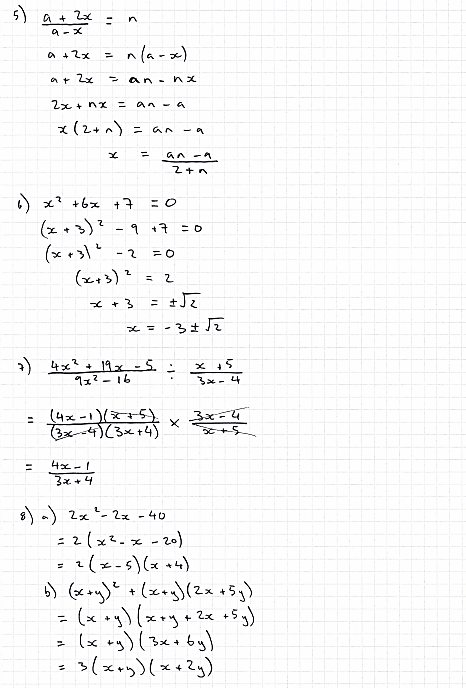 5) (a + 2x)/(a - x) = n
a + 2x = n(a - x)
a + 2x = an - nx
2x + nx = an - a
x(2+n) = an - a
x = (an - a)/(2+n)
6) x² + 6x + 7 = 0
(x + 3)² - 9 + 7 = 0
(x + 3)² - 2 = 0
(x+3)² = 2
x + 3 = ±√2
x = -3 ± √2
7) (4x² + 19x - 5)/(9x² - 16) ÷ (x + 5)/(3x - 4)
= (4x - 1)(x + 5)/(3x - 4)(3x + 4) × (3x - 4)/(x + 5)
= (4x - 1)/(3x + 4)
8) a) 2x² - 2x - 40
= 2(x² - x - 20)
= 2(x - 5)(x + 4)
b) (x+y)² + (x+y)(2x + 5y)
= (x + y)(x + y + 2x + 5y)
= (x + y)(3x + 6y)
= 3(x + y)(x + 2y)